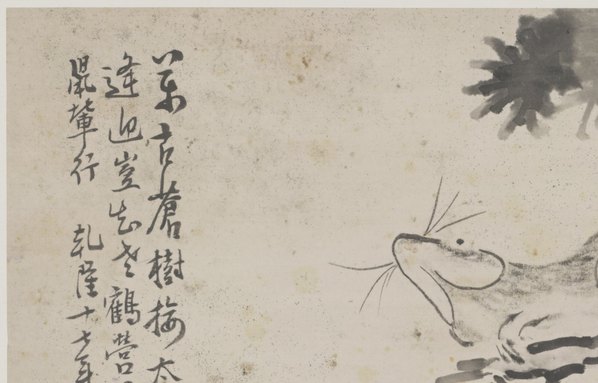 萬古蒼樹接太
逢迎豈知老鶴營
鼠輩行 乾隆十七年